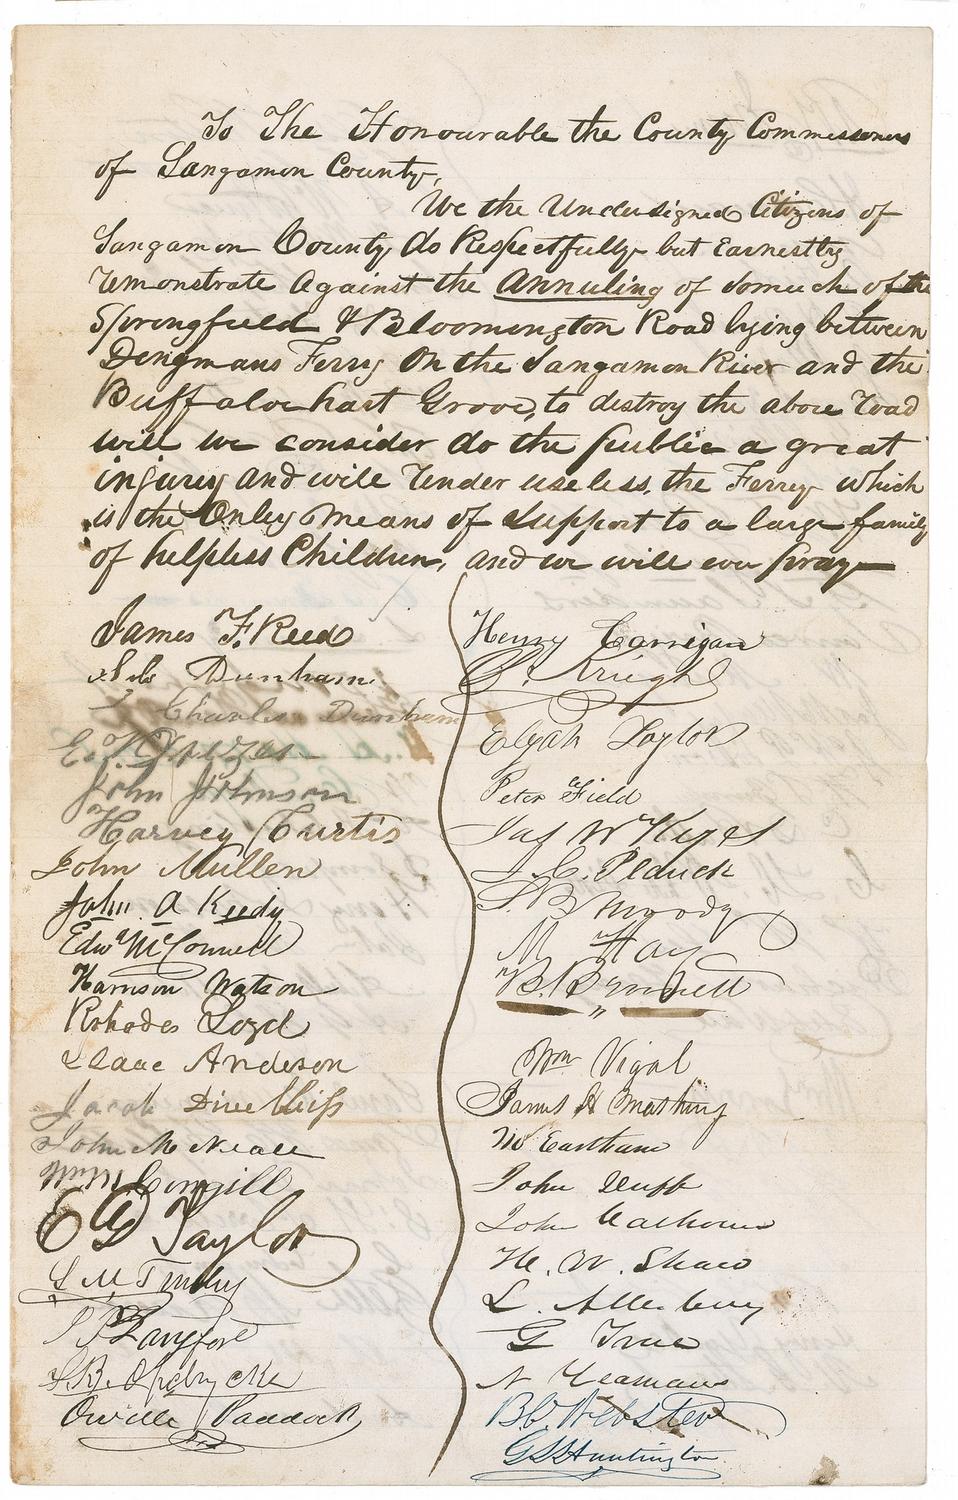 To The Honourable the County Commissoners
of Sangamon County,
We the Undersigned Citizens of
Sangamon County do Respectfully but Earnestly
remonstrate Against the Annuling of somuch of the
Springfield & Bloomington Road lying between
Dingmans Ferry On the Sangamon River and the
Buffaloe hart Grove, to destroy the above road
will we consider do the public a great
injury and will render useless, the Ferry which
is the Onley Means of Support to a large family
of helpless Children, and we will ever pray
James F. Reed
Dunham
Charles Dunham
E.
John Johnson
Harvey Curtis
John Mullen
John A Keedy
Edwd McConnell
Harrison Watson
Rhodes Loyd
Isaac Anderson
Jacob Divelbiss
John McNeale
Wm M Cowgill
E D Taylor
S M Tinsley
Langford
S. B. Opdycke
Orville Paddock
Henry Carrigan
Knight
Elijah Taylor
Peter Field
Jas W Keyes
J. C. Planck
S B Moody
M Hay
Wm Vigal
James
Eastham
John Duff
John Calhoun
H. W. Shaw
L. Allenbury
G True
N Yeamans
B C Webster
G L Huntington